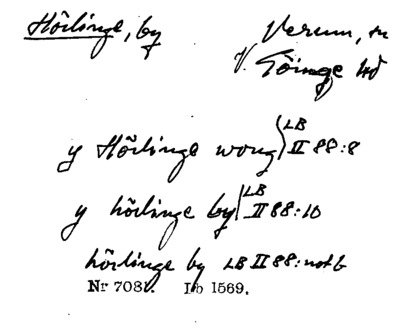 Hörlinge, by
Verum, sn
V. Göinge hd
y Hörlinge wong LB II 88:8
y hörlinge by LB II 88:10
hörlinge by LB II 88: not b
Nr 7081. Lb 1569.